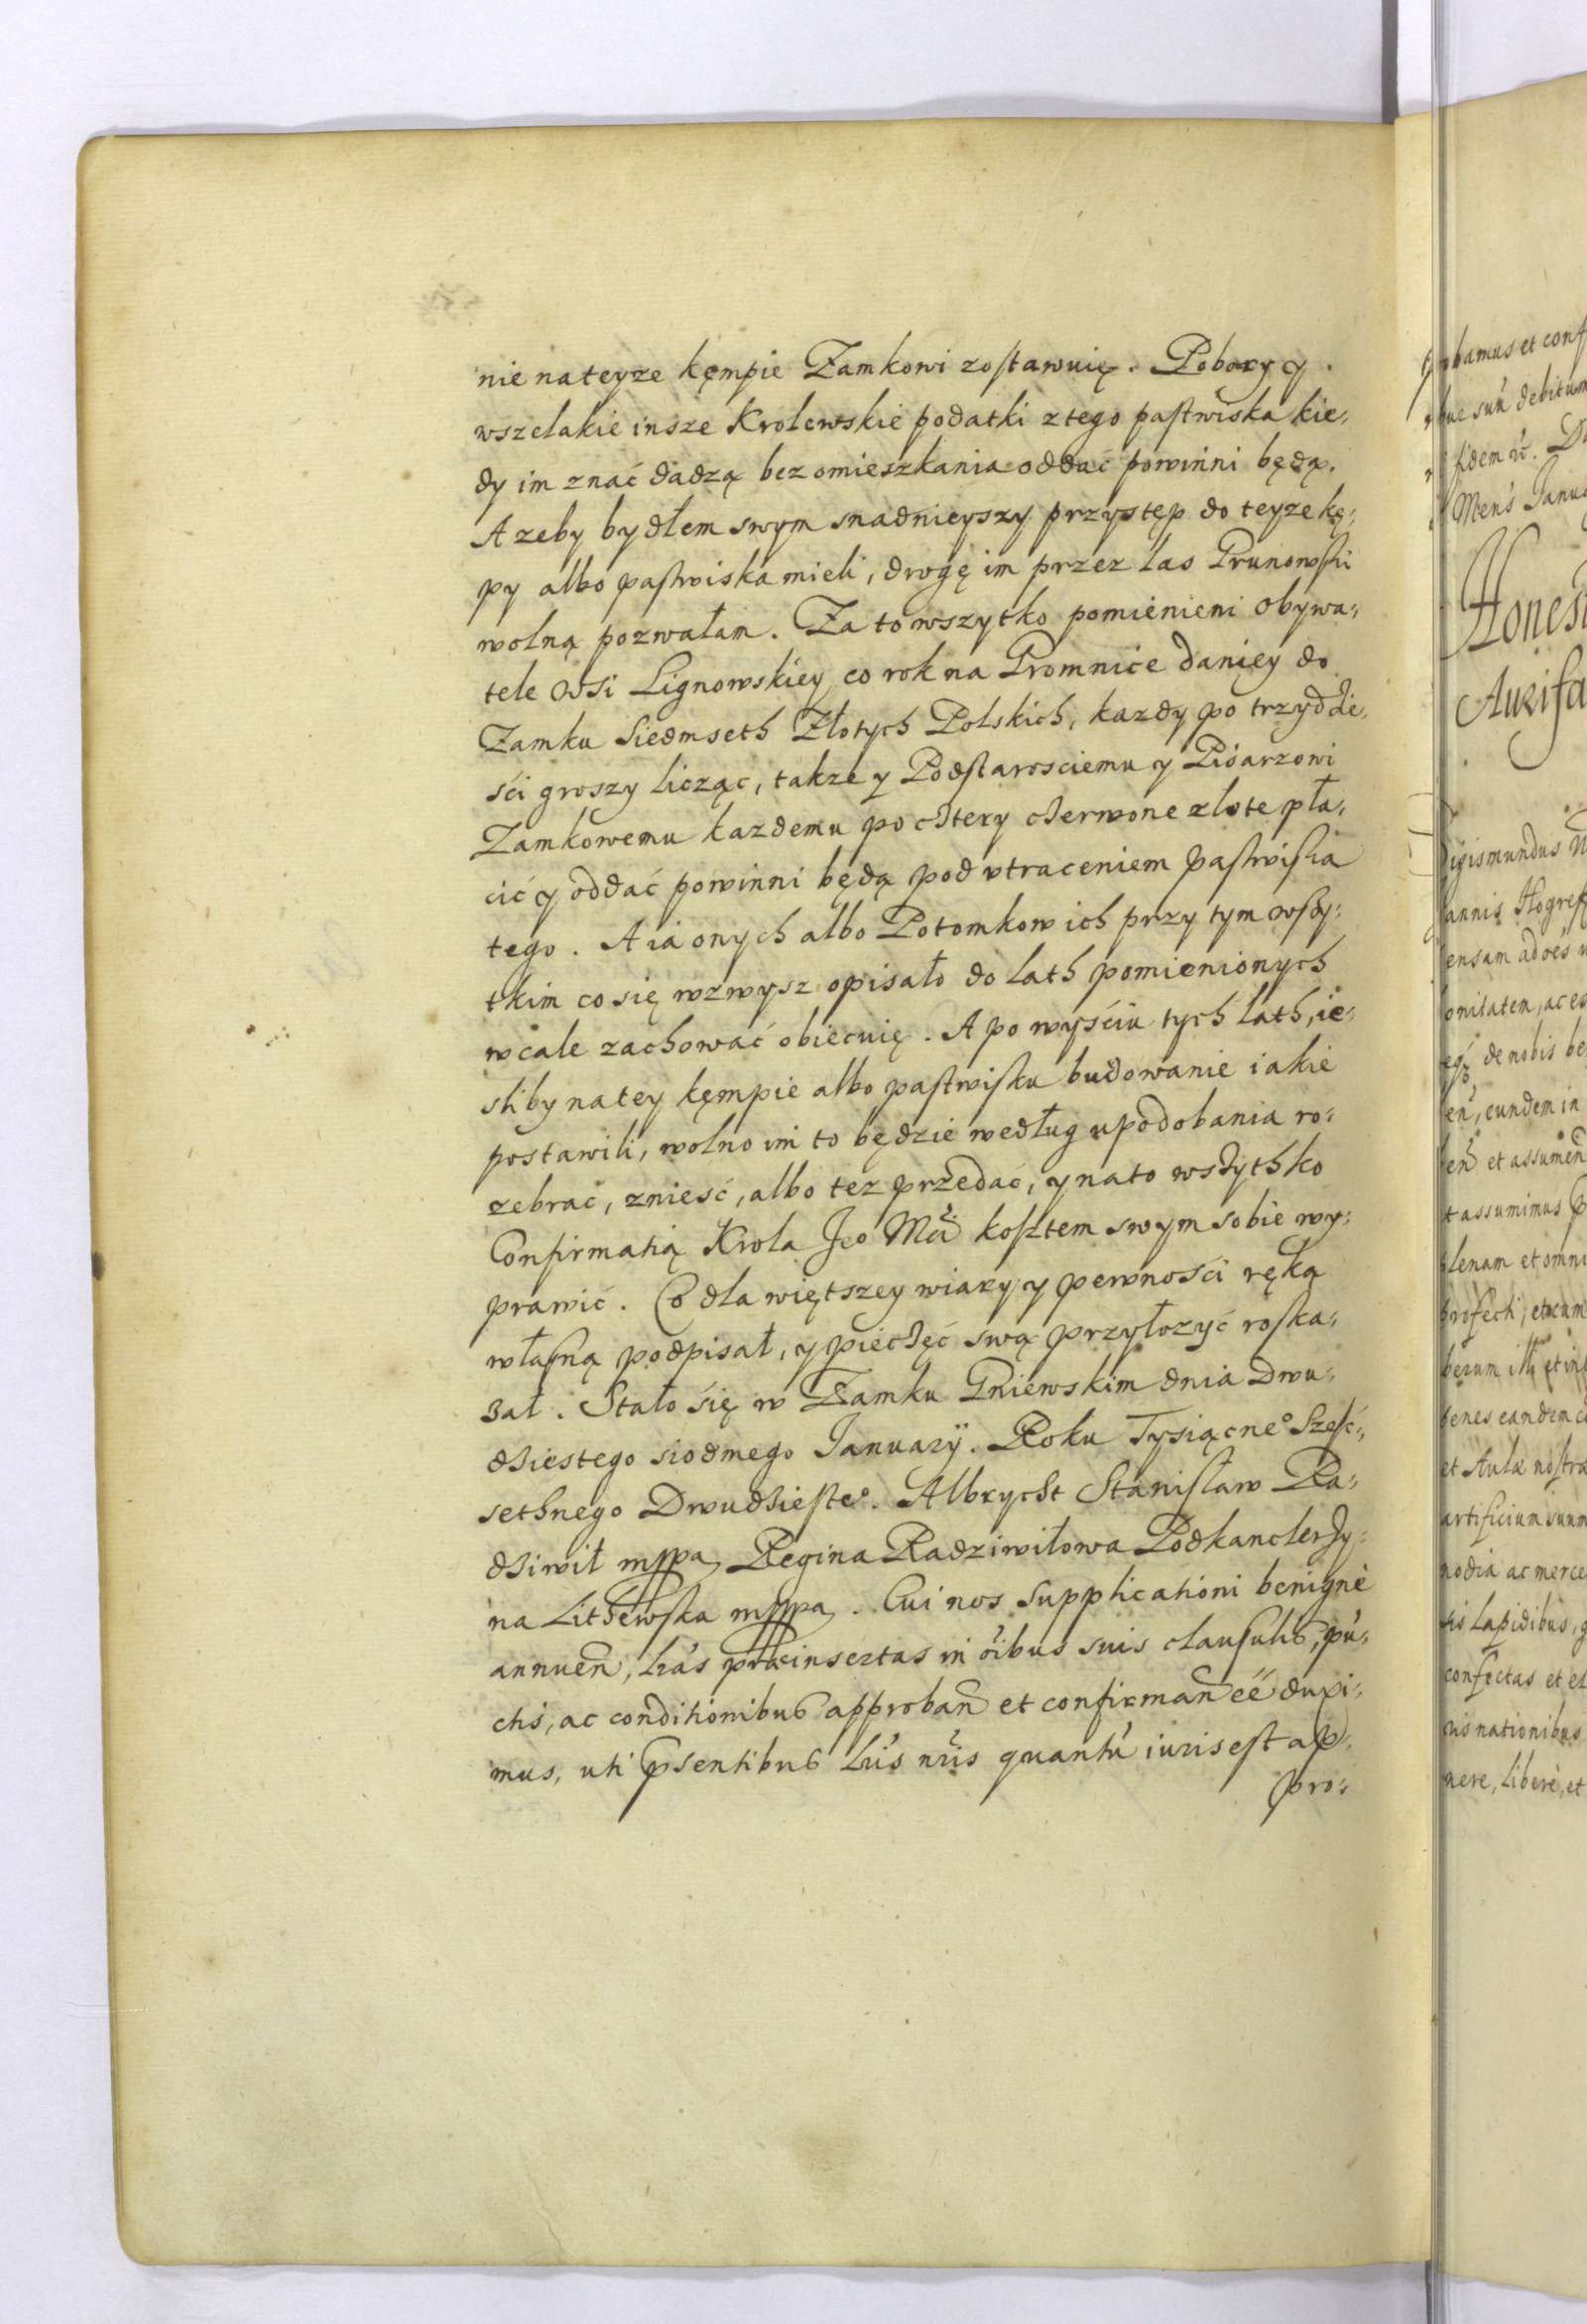 nie na teyze kęmpie Zamkowi zostawuię. Pobory y
wszelakie insze Krolewskie podatki z tego pastwiska kie,
dy im znać dadzą bez omieszkania oddać powinni będą.
A zeby bydłem swym snadnieyszy przystęp do teyze kę:
py albo pastwiska mieli, drogę im przez las Prunowski
wolną pozwałam. Za to wszytko pomienieni obywa:
tele wsi Lignowskiey co rok na Gromnice daniey do
Zamku Siedmseth Złotych Polskich, kazdy po trzydzie,
ści groszy licząc, takze y Podstarosciemu y Pisarzowi
Zamkowemu kazdemu po cztery czerwone złote pła,
cić y oddać powinni będą pod utraceniem pastwiska
tego. A ia onych albo Potomkow ich przy tym wszy:
tkim co się wzwysz opisało do lath pomienionych
wcale zachować obiecuię. A po wyściu tych lath, ie:
sliby na tey kęmpie albo pastwisku budowanie iakie
postawili, wolno im to będzie według upodobania ro:
zebrać, znieść, albo tez przedać, y na to wszythko
Confirmatią Krola Jeo Mći kosztem swym sobie wy:
prawić. Co dla większey wiary y pewności ręką
własną podpisał, y pieczęć swą przyłozyć roska:
zał. Stało się w Zamku Gniewskim dnia Dwu:
dziestego siodmego Januarÿ. Roku Tysiącne° Szesć:
sethnego Dwudzieste°. Albrycht Stanisław Ra:
dziwił mppa, Regina Radziwiłowa Podkanclerzy:
na Lithewska mppa. Cui nos supplicationi benigne
annuen̄, lrás præinsertas in oibus suis clausulis, pu:
ctis, ac conditionibus approban̄ et confirman̄ eé duxi:
mus, uti p̄sentibus lris nris quantu iuris est ap:
pro:
bamus et conf
fidem
Mens Janua
Honest
Aurifa
igismundus
annis Hogref
ensam ad
onitatem, ac
de nobis be
eundem in
et assumen
t assumimus
lenam et omni
benes eandem
et Aulæ nostræ
artificium suum
nodia ac merce
is lapidibus, g
confectas et
nis nationibus
nere, liberè, et